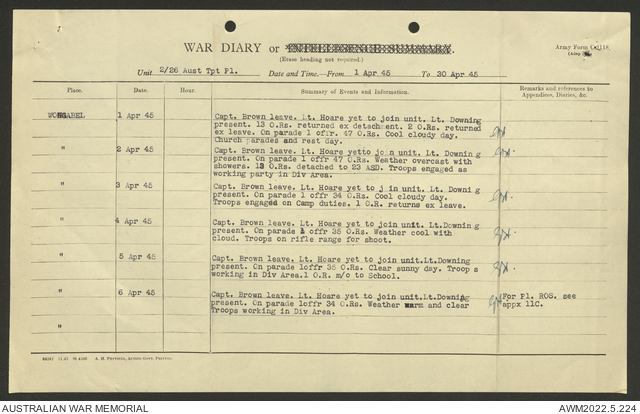 WAR DIARY or INTELLIGENCE SUMMARY.
(Erase heading not required.)
Army Form C.2118
Unit 2/26 Aust Tpt Pl. Date and Time.—From 1 Apr 45 To 30 Apr 45
Place. Date. Hour. Summary of Events and Information. Remarks and references to Appendices, Diaries, &c.
WONGABEL 1 Apr 45 Capt. Brown leave. Lt. Hoare yet to join unit. Lt. Downing
present. 13 O.Rs. returned ex detachment. 2 O.Rs. returned
ex leave. On parade 1 offr. 47 O.Rs. Cool cloudy day.
Church parades and rest day.
" 2 Apr 45 Capt. Brown leave. Lt. Hoare yetto join unit. Lt. Downin g
present. On parade 1 offr 47 O.Rs. Weather overcast with
showers. 13 O.Rs. detached to 23 ASD. Troops engaged as
working party in Div Area.
" 3 Apr 45 Capt. Brown leave. Lt. Hoare yet to j in unit. Lt. Downi ng
present. On parade 1 offr 34 O.Rs. Cool cloudy day.
Troops engaged on Camp duties. 1 O.R. returns ex leave.
" 4 Apr 45 Capt. Brown leave. Lt. Hoare yet to join unit. Lt.Downi ng
present. On parade 1 offr 35 O.Rs. Weather cool with
cloud. Troops on rifle range for shoot.
" 5 Apr 45 Capt. Brown leave. Lt. Hoare yet to join unit. Lt.Downing
present. On parade 1offr 35 O.Rs. Clear sunny day. Troop s
working in Div Area.1 O.R. m/o to School.
" 6 Apr 45 Capt. Brown leave. Lt. Hoare yet to join unit.Lt.Downing
present. On parade 1offr 34 O.Rs. Weather warm and clear
Troops working in Div Area.
For Pl. ROS. see
appx 11C.
"
A. H. Pettifer, Acting Govt. Printer.
AUSTRALIAN WAR MEMORIAL AWM2022.5.224